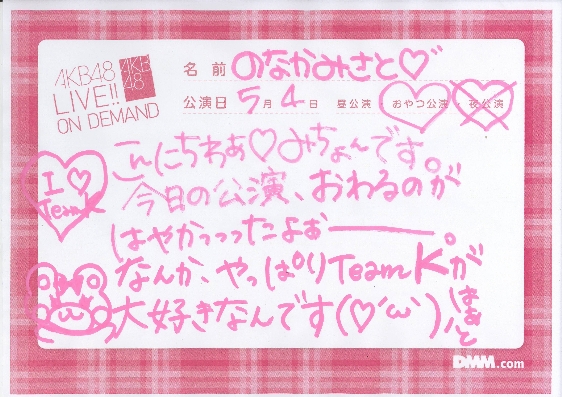 AKB48
LIVE!!
ON DEMAND
AKB
48
名前 のなかみさと♡゛
公演日 5月4日 昼公演・おやつ公演・夜公演
こんにちわぁ♡みちょんです。
今日の公演、おわるのが
はやかっっったよぉーーー
なんか、やっぱりTeamKが
大好きなんです(♡´ω`)はぁと
I♡
TeamK
DMM.com